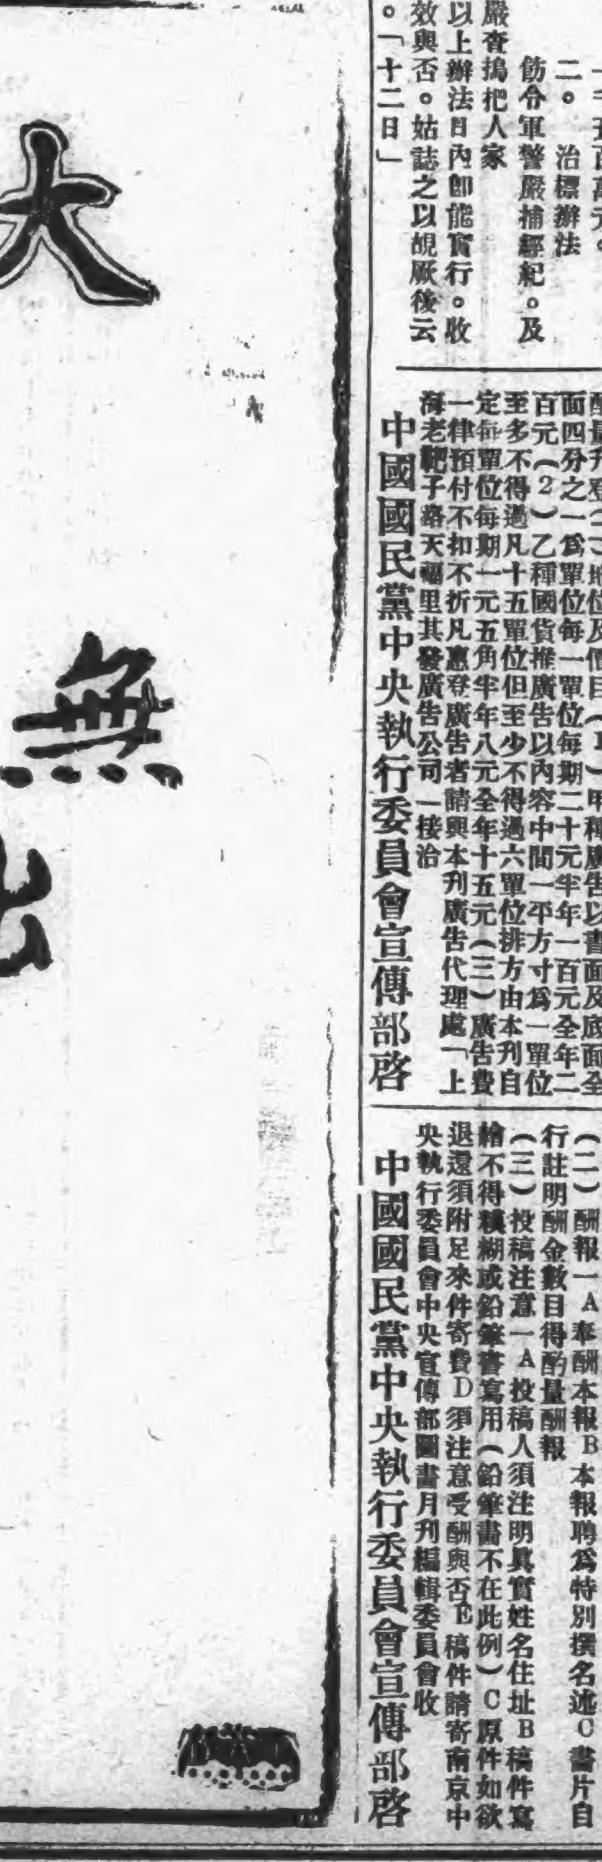 一千五百萬元。
二。　治標辦法
飭令軍警嚴捕經紀。及
嚴查搗把人家
以上辦法日內卽能實行。收
效與否。姑誌之以覘厥後云
。「十二日」
面四分之一爲單位每一單位每期二十元半年一百元全年二
百元（2）乙種國貨推廣告以內容中間一平方寸爲一單位
至多不得過凡十五單位但至少不得過六單位排方由本刊自
定每單位每期一元五角半年八元全年十五元（三）廣告費
一律預付不扣不折凡惠登廣告者請與本刊廣告代理處「上
海老靶子路天福里其發廣告公司「接洽
中國國民黨中央執行委員會宣傳部啓
（二）酬報一A奉酬本報B本報聘爲特別撰名述C書片自
行註明酬金數目得酌量酬報
（三）投稿注意一A投稿人須注明眞實姓名住址B稿件寫
繪不得糢糊或鉛筆書寫用（鉛筆畵不在此例）C原件如欲
退還須附足來件寄費D須注意受酬與否E稿件請寄南京中
央執行委員會中央宣傳部圖書月刊編輯委員會收
中國國民黨中央執行委員會宣傳部啓
大
無